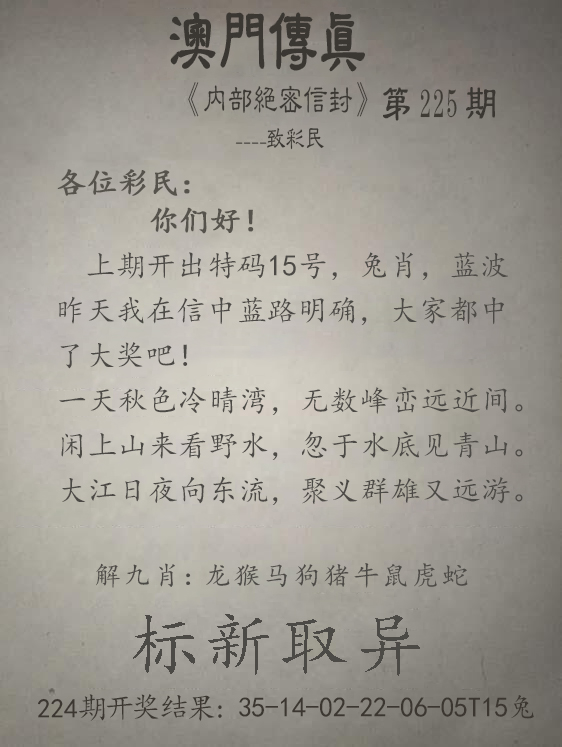 澳門傳真
《内部絕密信封》第225期
----致彩民
各位彩民：
你们好！
上期开出特码15号，兔肖，蓝波
昨天我在信中蓝路明确，大家都中
了大奖吧！
一天秋色冷晴湾，无数峰峦远近间。
闲上山来看野水，忽于水底见青山。
大江日夜向东流，聚义群雄又远游。
解九肖：龙猴马狗猪牛鼠虎蛇
标新取异
224期开奖结果：35-14-02-22-06-05T15兔